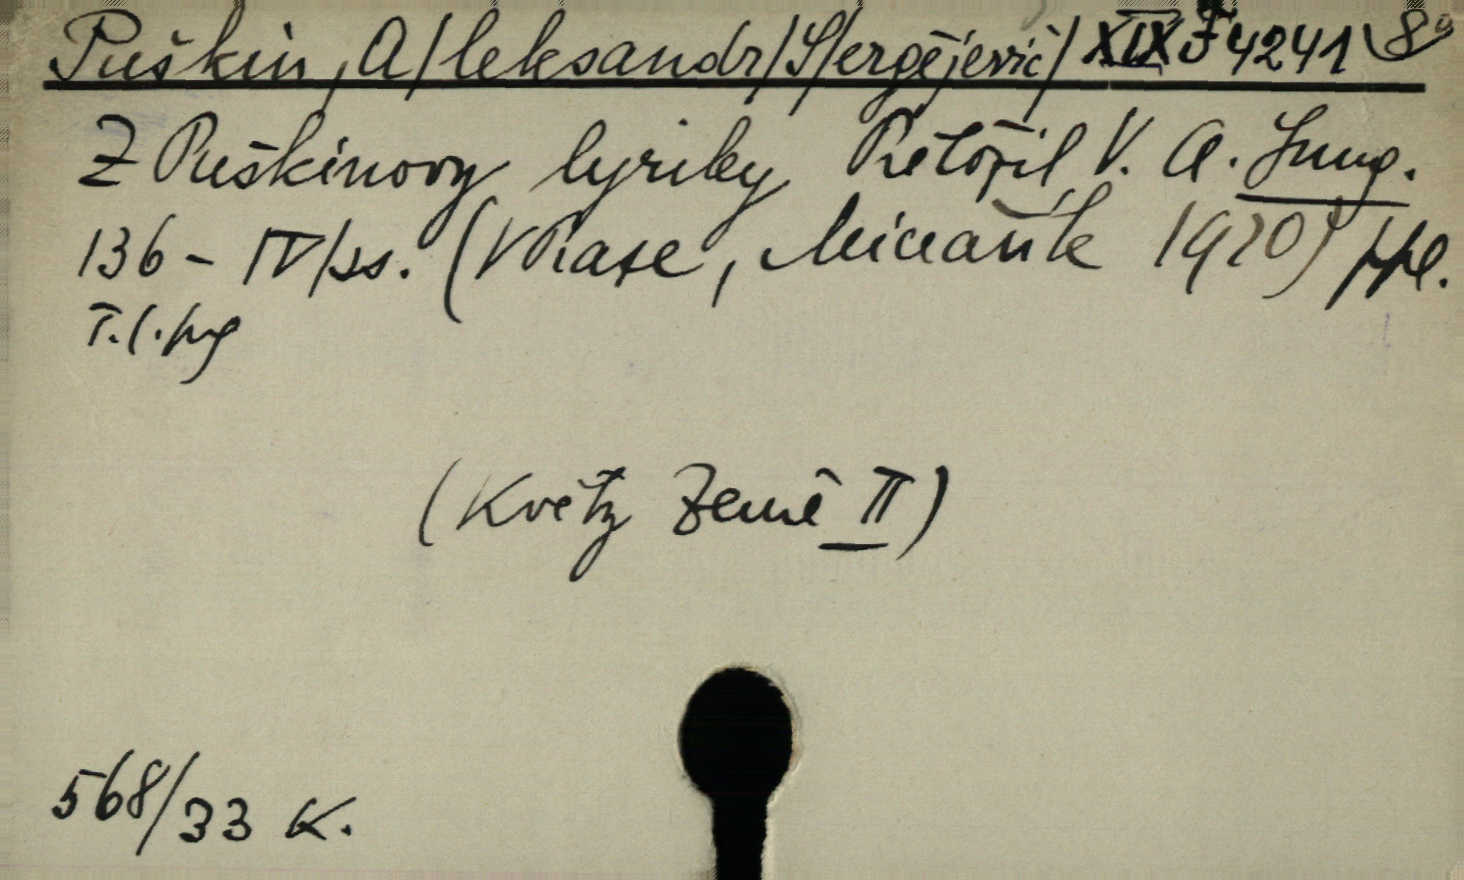 Puškin, A/leksandr/S/ergějevič/ XIX F 4241 8°
Z Puškinovy lyriky Přeložil V. A. Jung.
136 - IV/ss. (V Praze, Mičátek 1920) ppl.
(Květy Země II)
568/33 K.